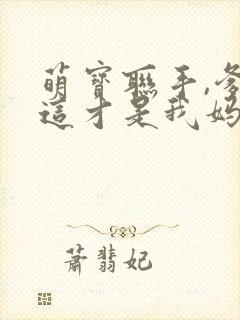 萌寶聯手,爹
這才是我媽
蕭翡妃